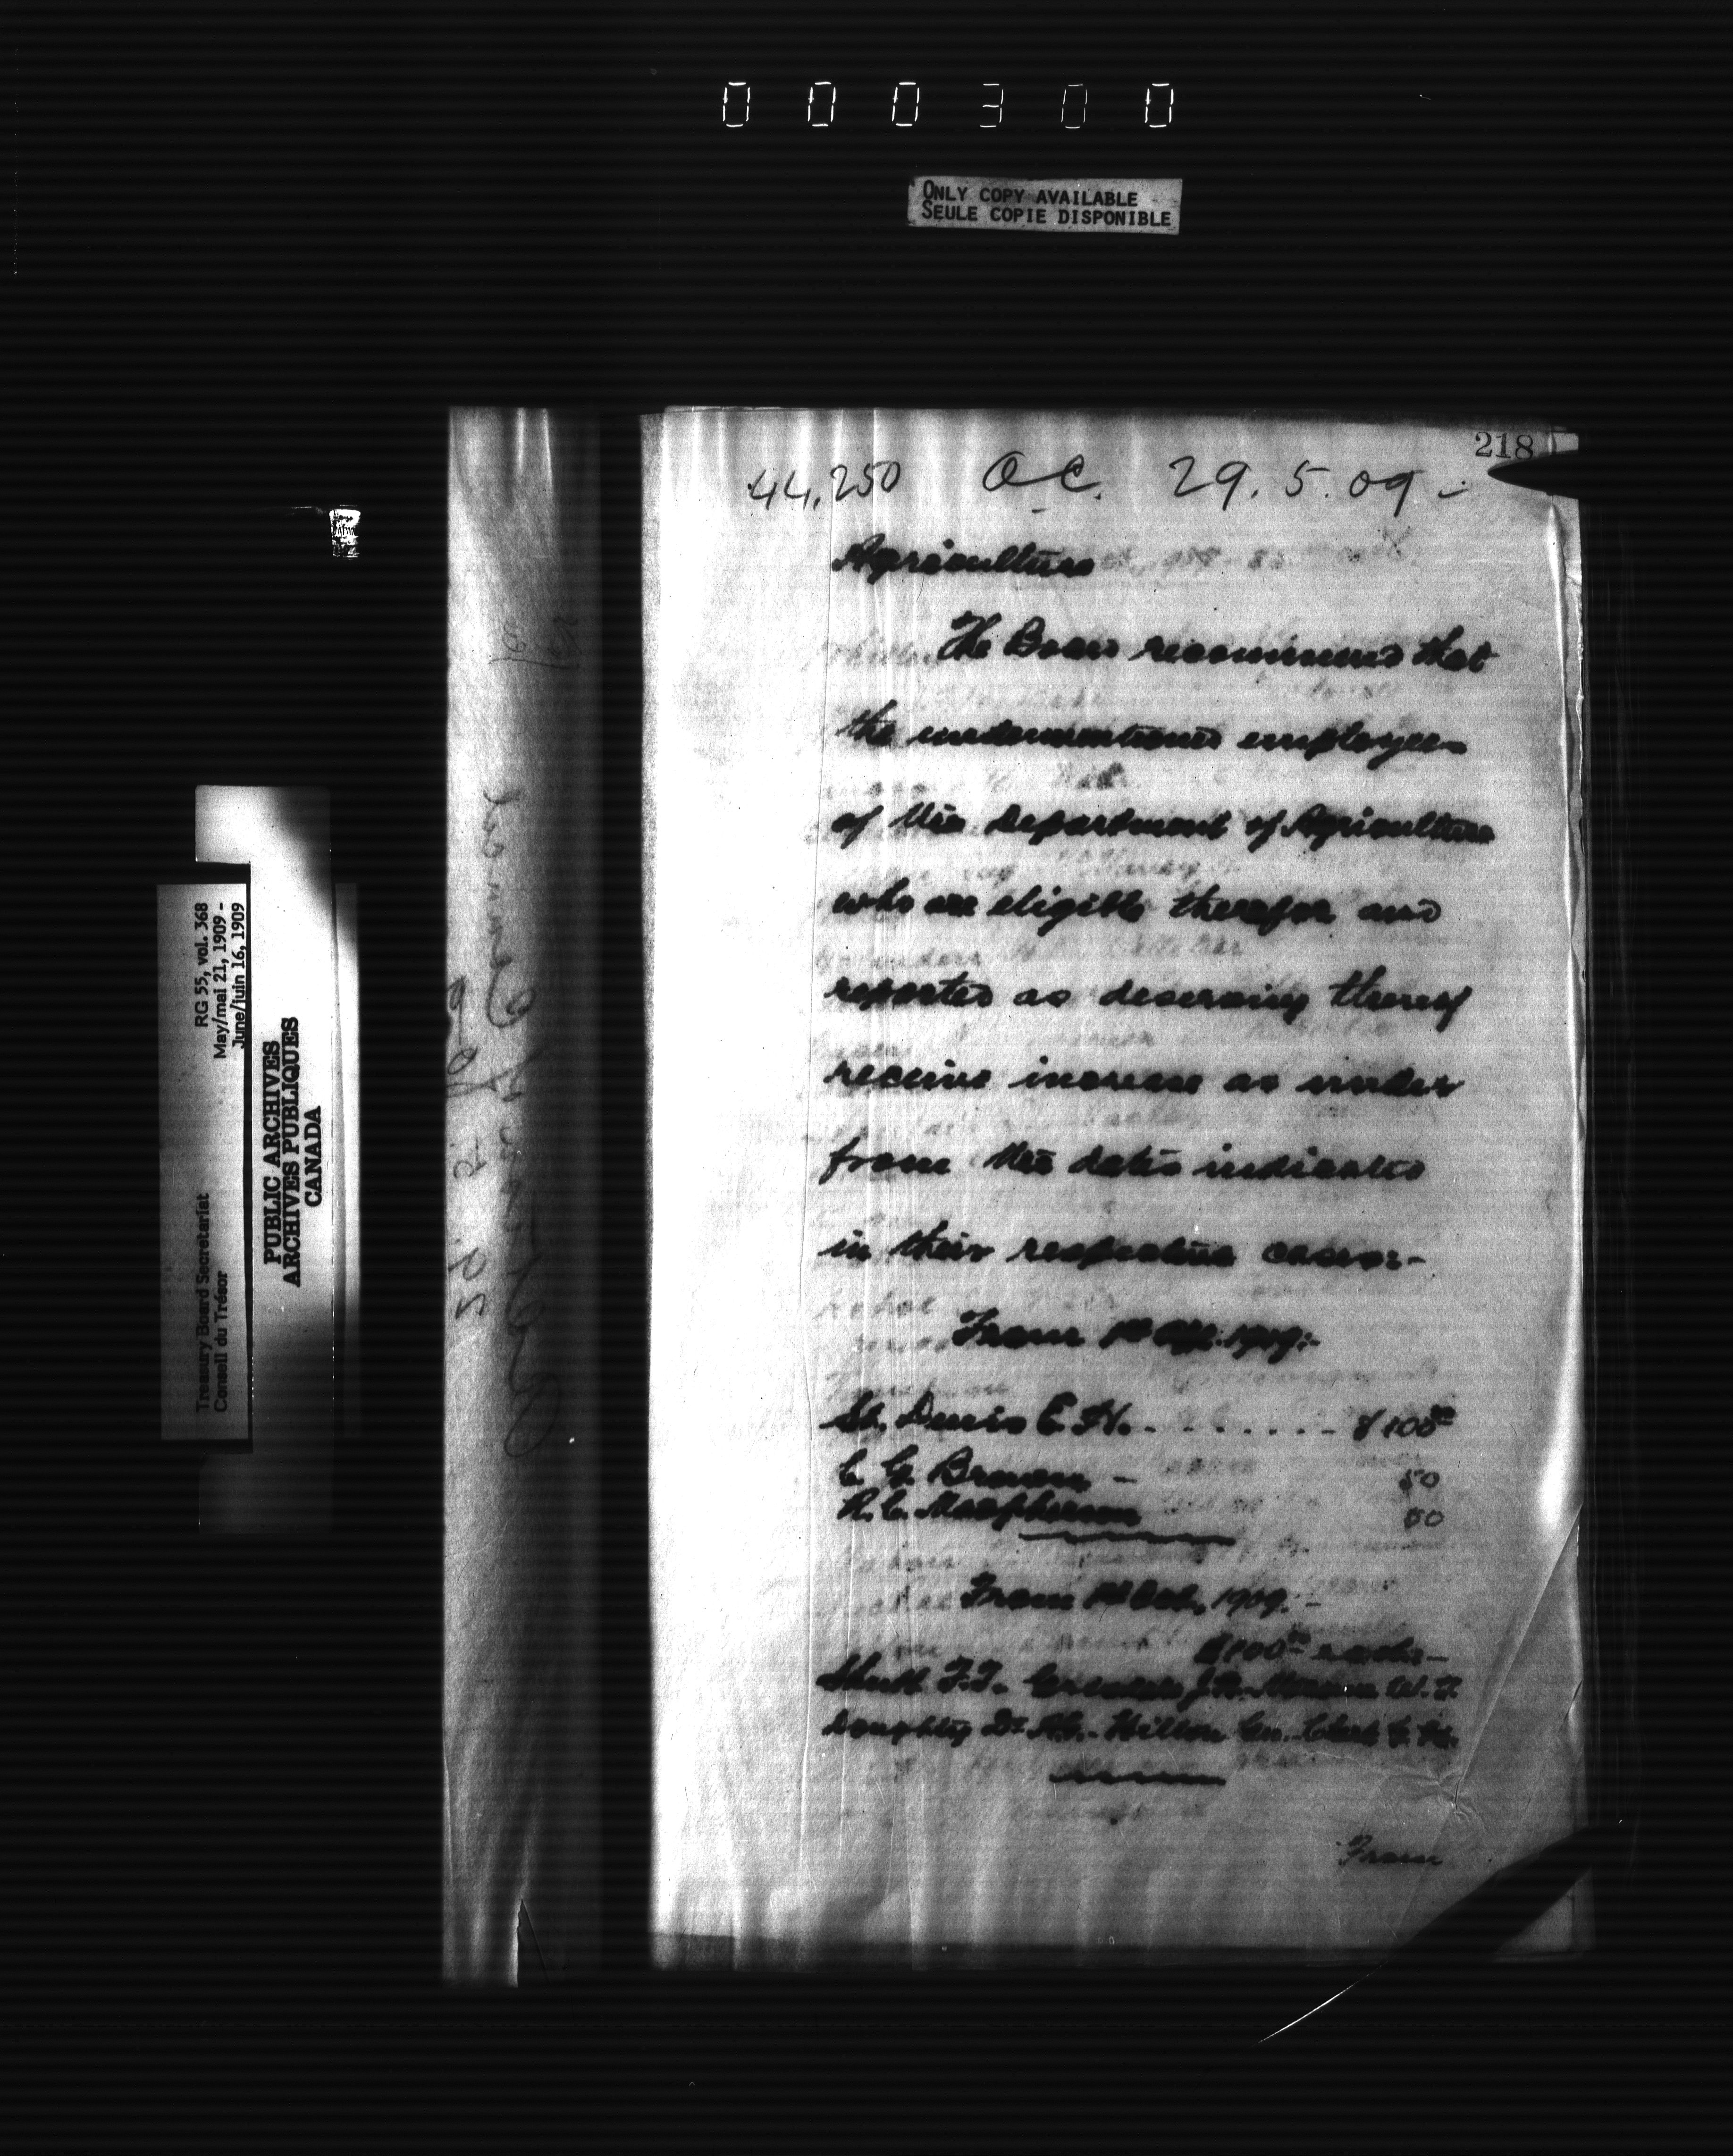 000300
ONLY COPY AVAILABLE
SEULE COPIE DISPONIBLE
218
44,250 O.C. 29.5.09 -
Agriculture
The Board recommend that
the undermentioned employees
of the Department of Agriculture
who are eligible therefor and
reported as deserving thereof
receive increase as under
from the dates indicated
in their respective cases:-
From 1st Apl. 1909:-
St. Denis E. H. - - - - - - - $100.00
C. G. Brown - 50
R. C. Macpherson 50
From 1st Oct. 1909. -
$100.00 each:-
Shutt F.T. J.R. W. T.
Doughty Dr. A.G. - Clark
From
RG 55, vol. 368
May/mai 21, 1909 -
June/juin 16, 1909
Treasury Board Secretariat
Conseil du Trésor
PUBLIC ARCHIVES
ARCHIVES PUBLIQUES
CANADA
Order of Council